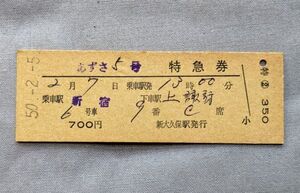 50.-2.-5
あずさ5号 特急券
2月7日 乗車駅発 13時00分
乗車駅 新宿 下車駅 上諏訪
6号車 9番C席
700円 新大久保駅発行
特 2 350
小